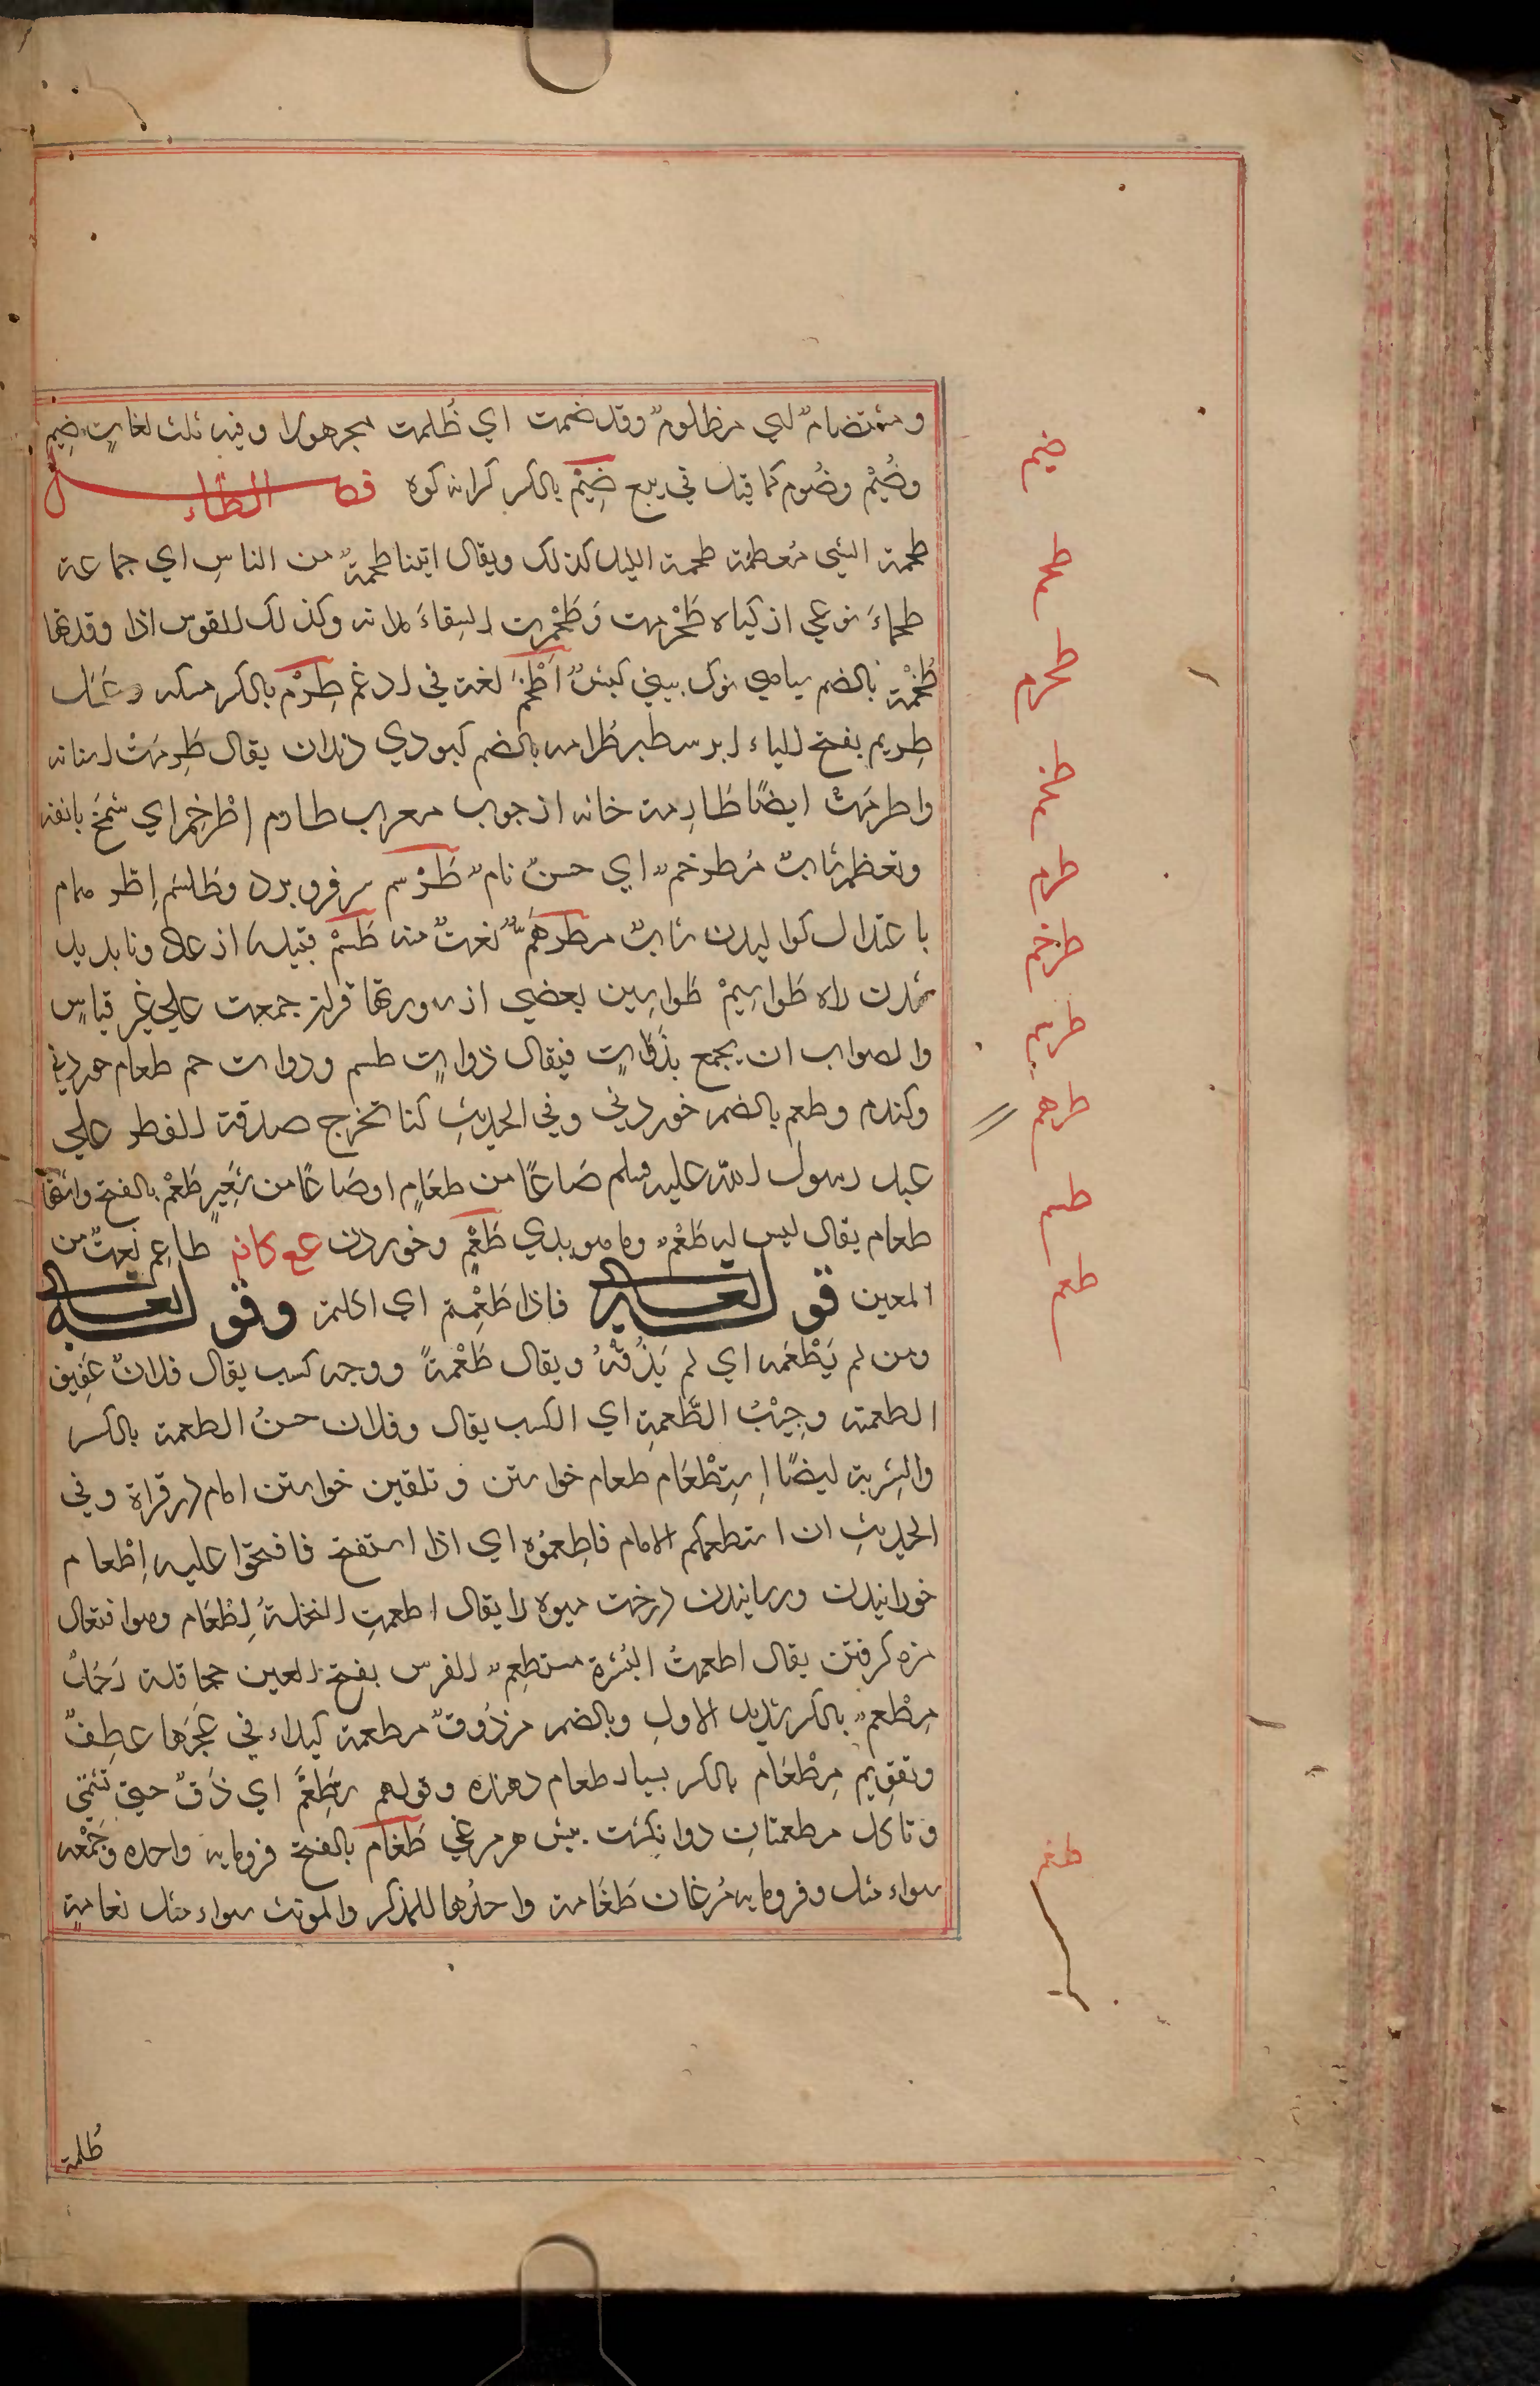 ومستضام اي مظلوم وقد ضمت اي ظُلمت مجهولا وفيه ثلث لغاتٍ ضِيم
وضُيْم وضُوم كما قيل في بيع ضِيْم بالكسر كرانه كوه فصل الطاء
طحمة الشي مُعظمة طحمة الليل كذلك ويقال اتينا طحمة من الناسِ اي جماعة
طحماءَ نوعي از كياه طَحْرمت وَطَحْمرت السِقاءَ ملاته وكذلك القوس اذا وقدتها
طُخْمة بالضم سياهي نوك بيني كبش اَطْخمُ لغة في ادغم طِرْم بالكسر مسكه وعَسَل
طِريم بفتح الياء ابر سطبر طُرامه بالضم كبودي دندان يقال طَرِمَتْ اسنانه
واطرمَتْ ايضًا طَارِمة خانه از چوب معرب طارم اِطْرخِمّ اي شمَخ بانفه
وتعظم شابٌ مُطرخم اي حسنٌ تام طَرْسم سر فرو برد وطَلسَم اِطرهمام
باعتدال كواليدن شابٌ مطرهَمّ نعتٌ منه طَسْم قبيلة از عاد ونابديد
شدن راه طَواسِيمْ طَواسِين بعضي از سورتها قران جمعت علي غير قياسٍ
والصواب ان يجمع بذَوَاتٍ فيقال ذواتٍ طسم وذوات حم طعام خوردني
وكندم وطعم بالضم خوردني وفي الحديثِ كنا نخرج صدقة الفطر علي
عهد رسول الله عليه وسلم صَاعًا من طعَامٍ اوصَاعًا من شعِيرٍ طَعْم بالفتح واشتها
طعام يقال ليس له طَعْم وما هو بذي طَعْمٍ وخوردن ع ع كانه طاعِم نعتٌ من
المعين قوله تعالي فاذا طَعِمْتم اي اكلتم وقوله تعالي
ومن لم يَطْعَمه اي لم يَذُقْهُ ويقال طَعْمةً ووجه كسب يقال فلانٌ عَفِيف
الطعمة وخبيْثُ الطّعمةِ اي الكسب يقال وفلان حسنُ الطعمة بالكسر
والشِربة ايضًا اِستِطْعَام طعام خواستن وتلقين خواستن امام در قراة وفي
الحديثِ ان استطعمكم الامام فاطِعمُوه اي اذا استفتح فافتحوا عليه اِطْعام
خورانيدن ورسانيدن درخت ميوه را يقال اطعمتِ النخلةُ اِطْعَام وهو افتعال
مزه كرفتن يقال اطعمتْ البُسْرة مستطعِم الفرس بفتح العين جحافله رَجُلٌ
مِطْعم بالكسر شديد الاول وبالضم مرزُوقٌ مطعمة كبداء في عَجزها عطفٌ
وتقويم مِطْعَام بالكسر بسيار طعام دهنده وقولهم تَطعَّم اي ذَقْ حتي تشتهي
وتاكل مطعمتان دو انكشت پيش هر مرغي طَغام بالفتح فرومايه واحده وجَمْعه
سواء مثل وفرومايه مُرغان طَغَامة واحدُها للمذكر والمونث سواء مثل نعامةٍ
ضيم
طحم
طحرم
طخم
طرم
طرخم
طرسم
طرهم
طسم
طعم
طغم
ظُلمة